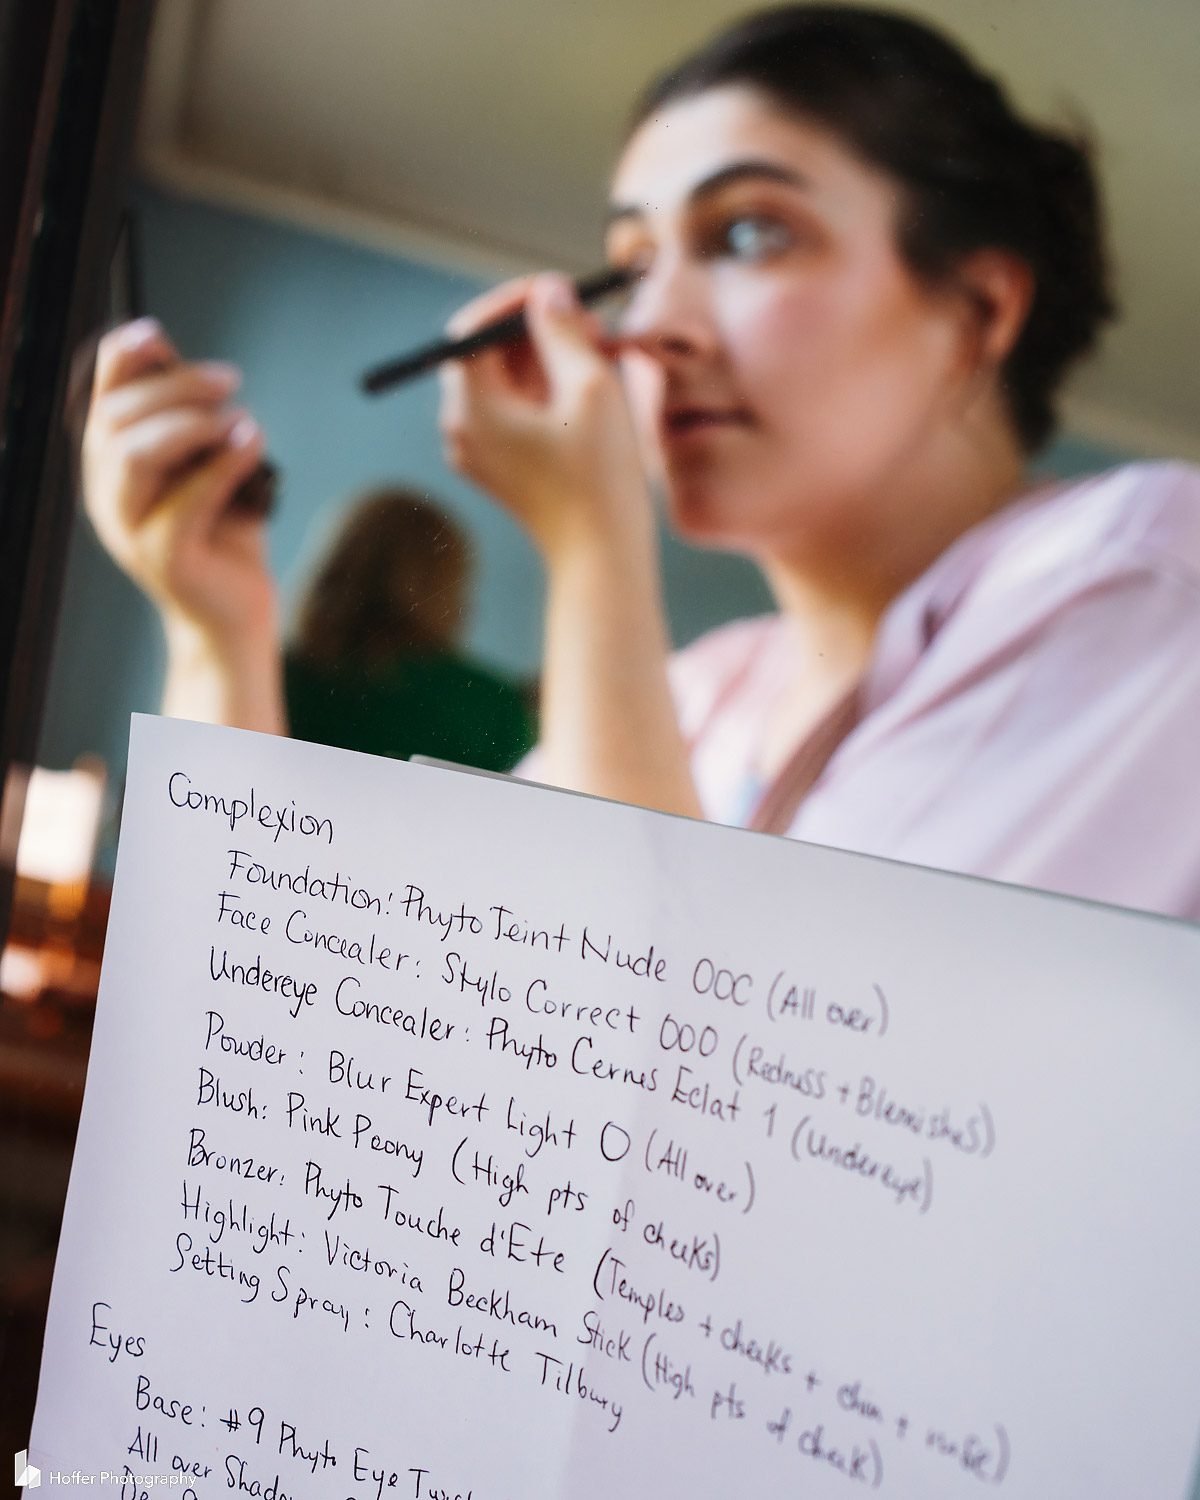 Complexion
Foundation: Phyto Teint Nude 00C (All over)
Face Concealer: Stylo Correct 000 (Redness + Blemishes)
Undereye Concealer: Phyto Cernes Eclat 1 (Undereye)
Powder: Blur Expert Light 0 (All over)
Blush: Pink Peony (High pts of cheeks)
Bronzer: Phyto Touche d'Ete (Temples + cheeks + chin + nose)
Highlight: Victoria Beckham Stick (High pts of cheek)
Setting Spray: Charlotte Tilbury
Eyes
Base: #9 Phyto Eye Twist
All over
Hoffer Photography